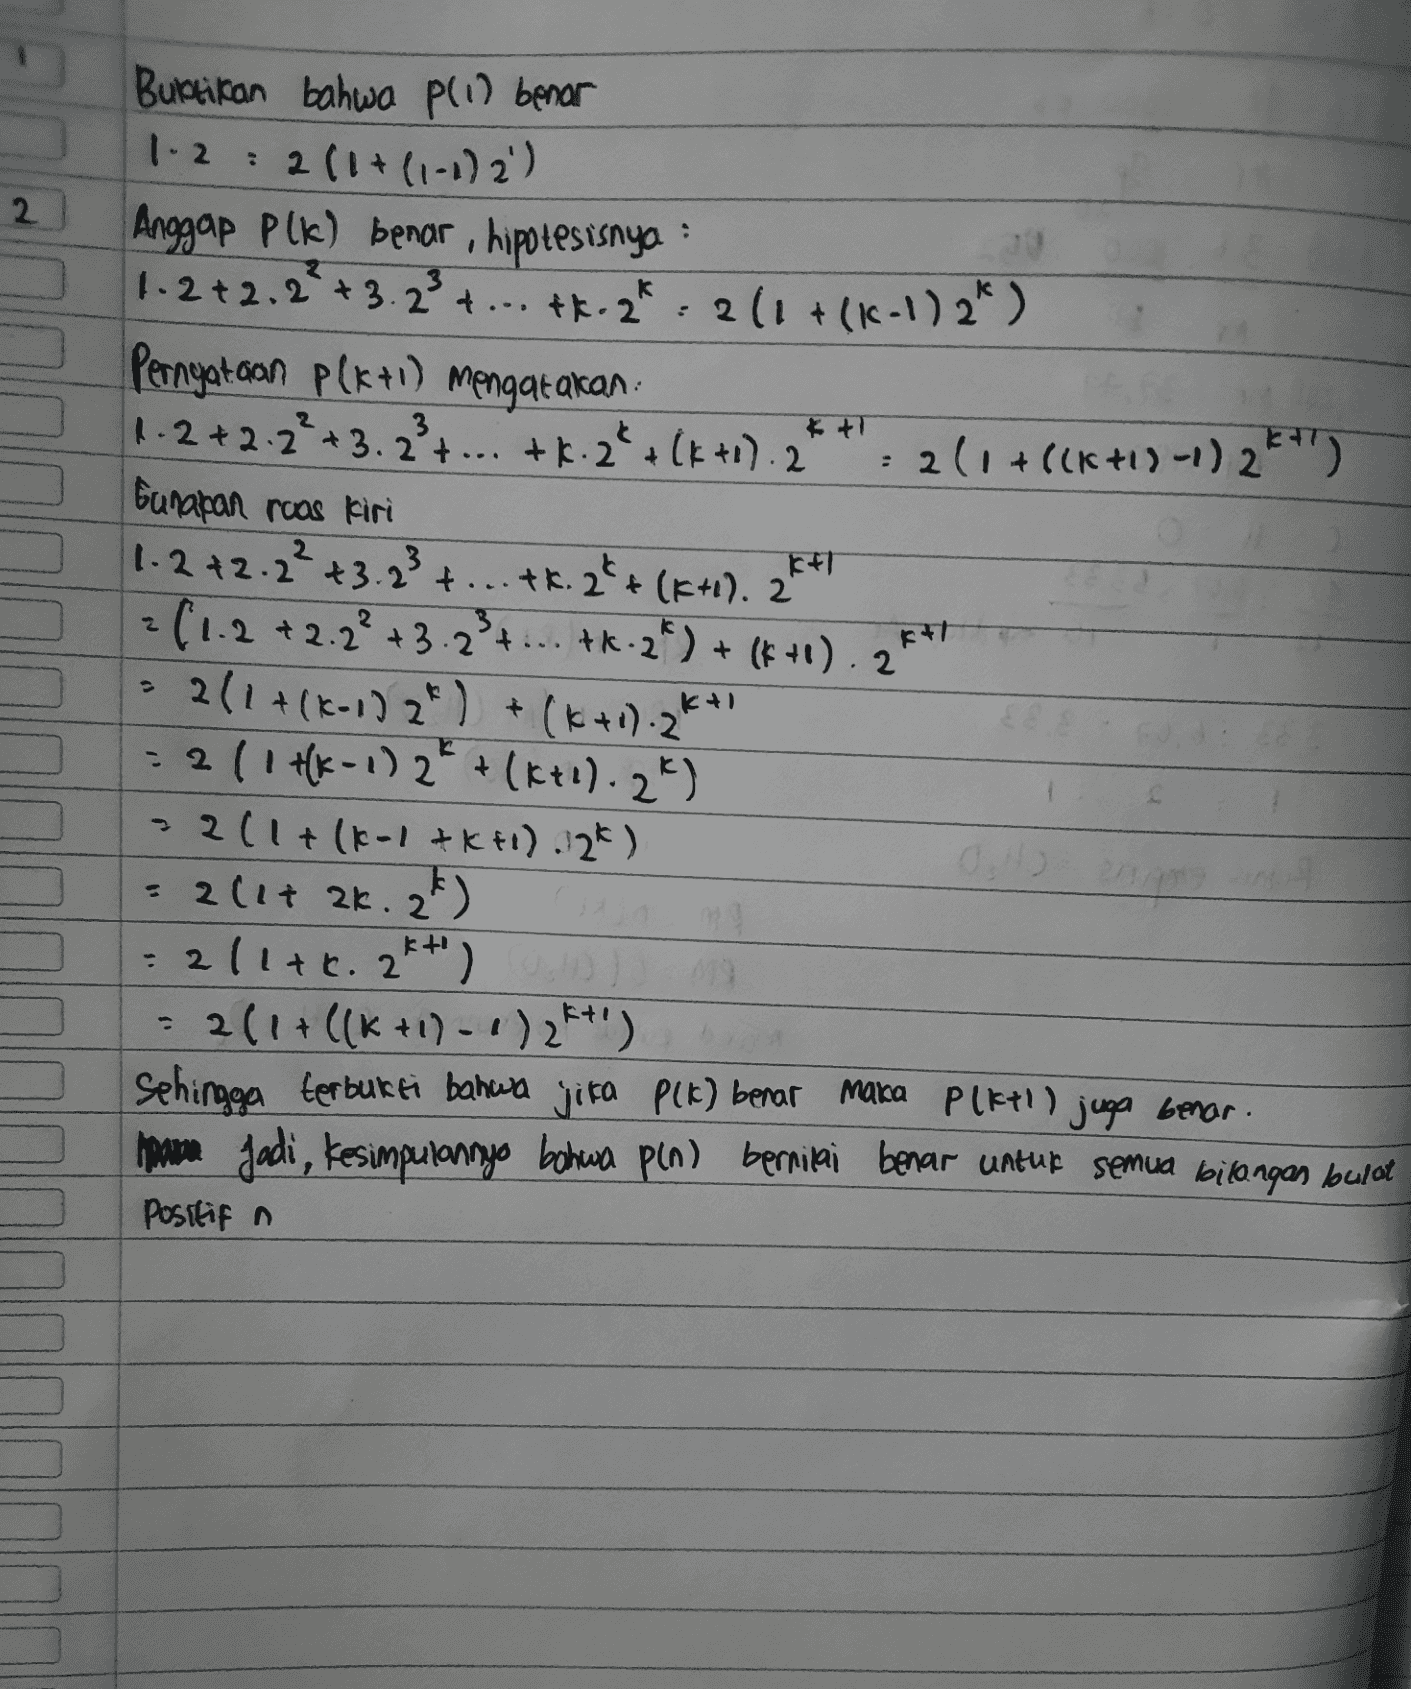 1 Buktikan bahwa P(1) benar
1.2 = 2 (1 + (1-1) 2¹)
2 Anggap P(k) benar, hipotesisnya :
1.2 + 2.2² + 3.2³ + ... + k.2ᵏ = 2 (1 + (k-1) 2ᵏ)
Pernyataan P(k+1) mengatakan:
1.2 + 2.2² + 3.2³ + ... + k.2ᵏ + (k+1).2ᵏ⁺¹ = 2 (1 + ((k+1)-1) 2ᵏ⁺¹)
Gunakan ruas kiri
1.2 + 2.2² + 3.2³ + ... + k.2ᵏ + (k+1).2ᵏ⁺¹
= (1.2 + 2.2² + 3.2³ + ... + k.2ᵏ) + (k+1).2ᵏ⁺¹
= 2 (1 + (k-1) 2ᵏ) + (k+1).2ᵏ⁺¹
= 2 (1 + (k-1) 2ᵏ + (k+1).2ᵏ)
= 2 (1 + (k-1 + k+1).2ᵏ)
= 2 (1 + 2k.2ᵏ)
= 2 (1 + k.2ᵏ⁺¹)
= 2 (1 + ((k+1)-1) 2ᵏ⁺¹)
Sehingga terbukti bahwa jika P(k) benar maka P(k+1) juga benar.
Jadi, kesimpulannya bahwa P(n) bernilai benar untuk semua bilangan bulat
positif n